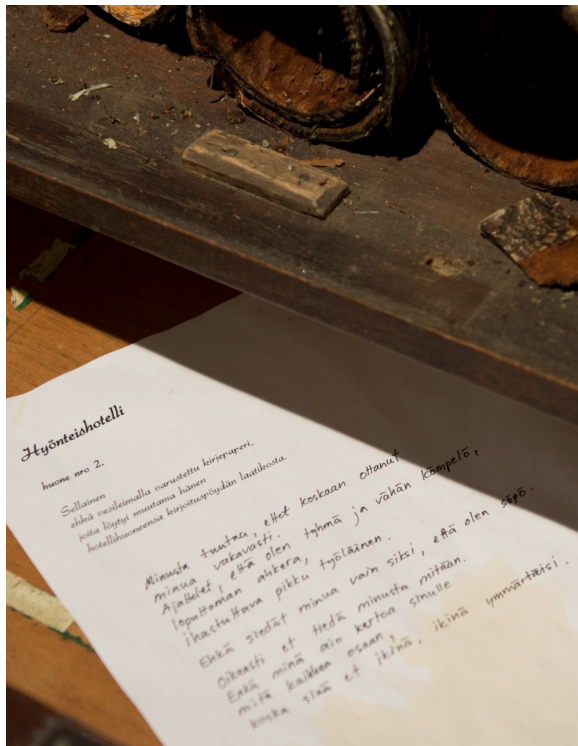 Hyönteishotelli
huone nro 2.
Sellainen
ehkä vesileimalla varustettu kirjepaperi,
joita löytyi muutama hänen
hotellihuoneensa kirjoituspöydän laatikosta.
Minusta tuntuu, ettet koskaan ottanut
minua vakavasti.
Ajattelet, että olen tyhmä ja vähän kömpelö,
loputtoman ahkera,
ihastuttava pikku työläinen.
Ehkä siedät minua vain siksi, että olen söpö.
Oikeasti et tiedä minusta mitään.
Enkä minä aio kertoa sinulle
mitä kaikkea osaan,
koska sinä et ikinä, ikinä ymmärtäisi.